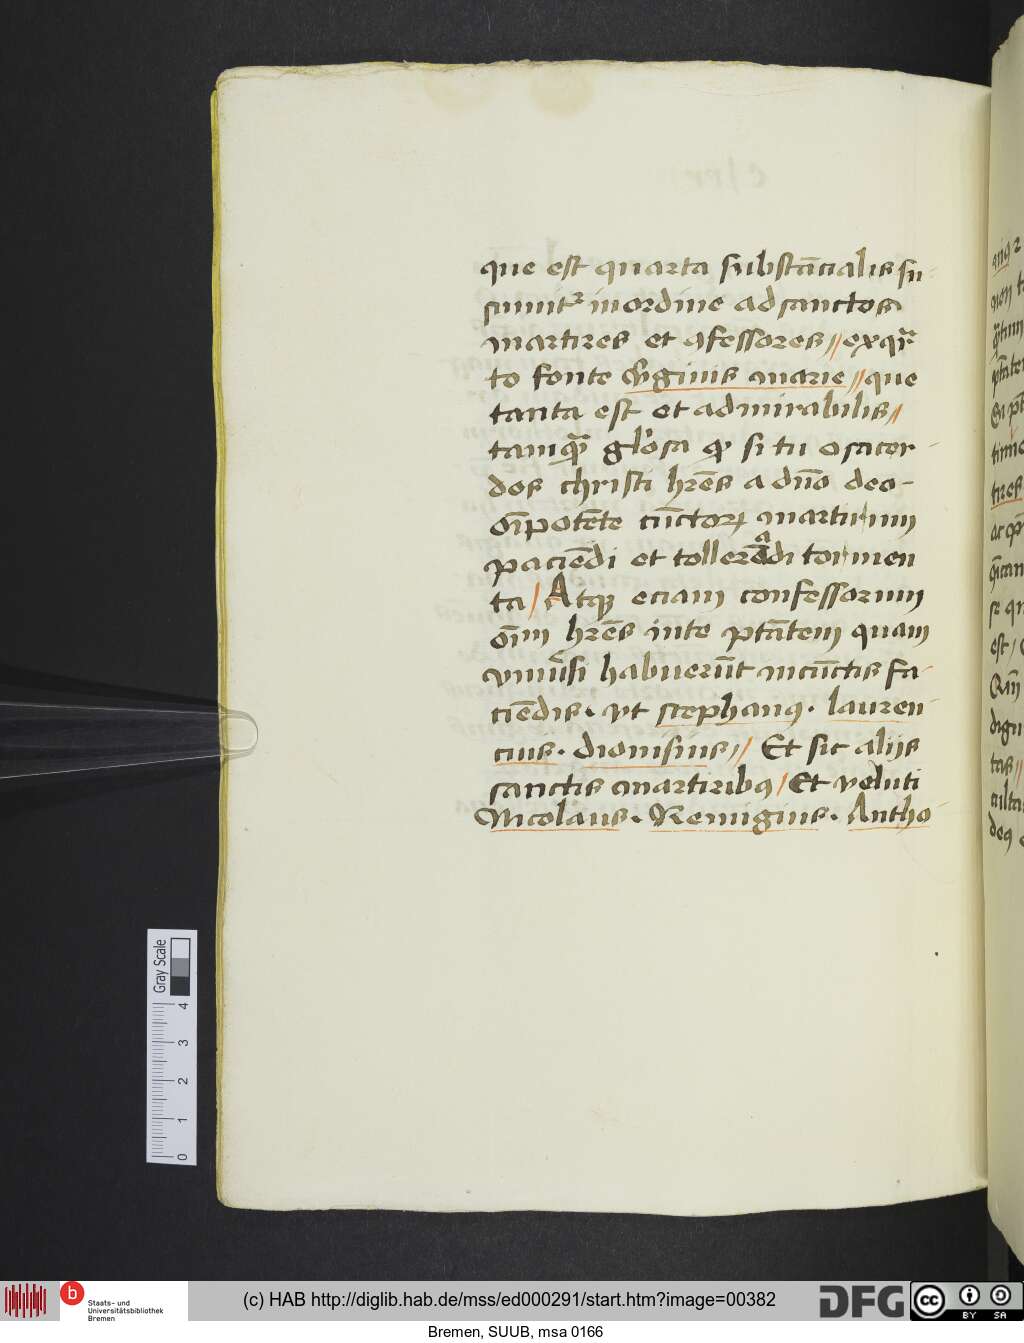 que est quarta substācialis su-
sumitᷣ in ordine ad sanctos
martires et ꝯfessores // ex qᷓr
to fonte v̄ginis marie // que
tanta est et admirabilis //
tamqᷓ glo'sa ꝙ si tu o sacer-
dos christi hr̄ēs a dn̄o deo-
om̄ipotēte cūctoꝝ martirum
paciēdi et tollerēadi tormen
ta / Atqꝫ eciam confessorum
om̄m hr̄ēs in te ptātem quam
vniūsi habuerūt in cūctis fa-
ciēdis. vt stephanꝰ. lauren
cius. dionisius // Et sic alijs
sanctis martiribꝰ / Et veluti
Nicolaus. Remigius. Antho
Gray Scale
4
3
2
1
0
b
Staats- und
Universitätsbibliothek
Bremen
(c) HAB http://diglib.hab.de/mss/ed000291/start.htm?image=00382
DFG
cc BY SA
Bremen, SUUB, msa 0166